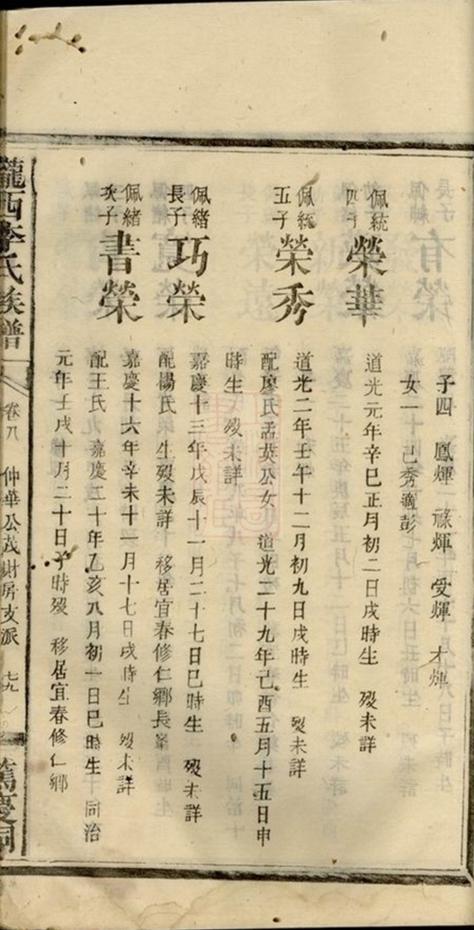 子四 鳳煇 祿煇 受煇 才煇
女一 己秀適彭
佩統四子 榮華
道光元年辛巳正月初二日戌時生 歿未詳
佩統五子 榮秀
道光二年壬午十二月初九日戌時生 歿未詳
配廖氏孟英公女 道光二十九年己酉五月十五日申
時生 歿未詳
佩緒長子 巧榮
嘉慶十三年戊辰十一月二十七日巳時生 歿未詳
配陽氏 生歿未詳 移居宜春修仁鄉長
佩緒次子 書榮
嘉慶十六年辛未十一月十七日戌時生 歿未詳
配王氏 嘉慶二十年乙亥八月初一日巳時生 同治
元年壬戌十月二十日子時歿 移居宜春修仁鄉
隴西李氏族譜 卷八 仲華公茂財房支派 七九 篤慶祠